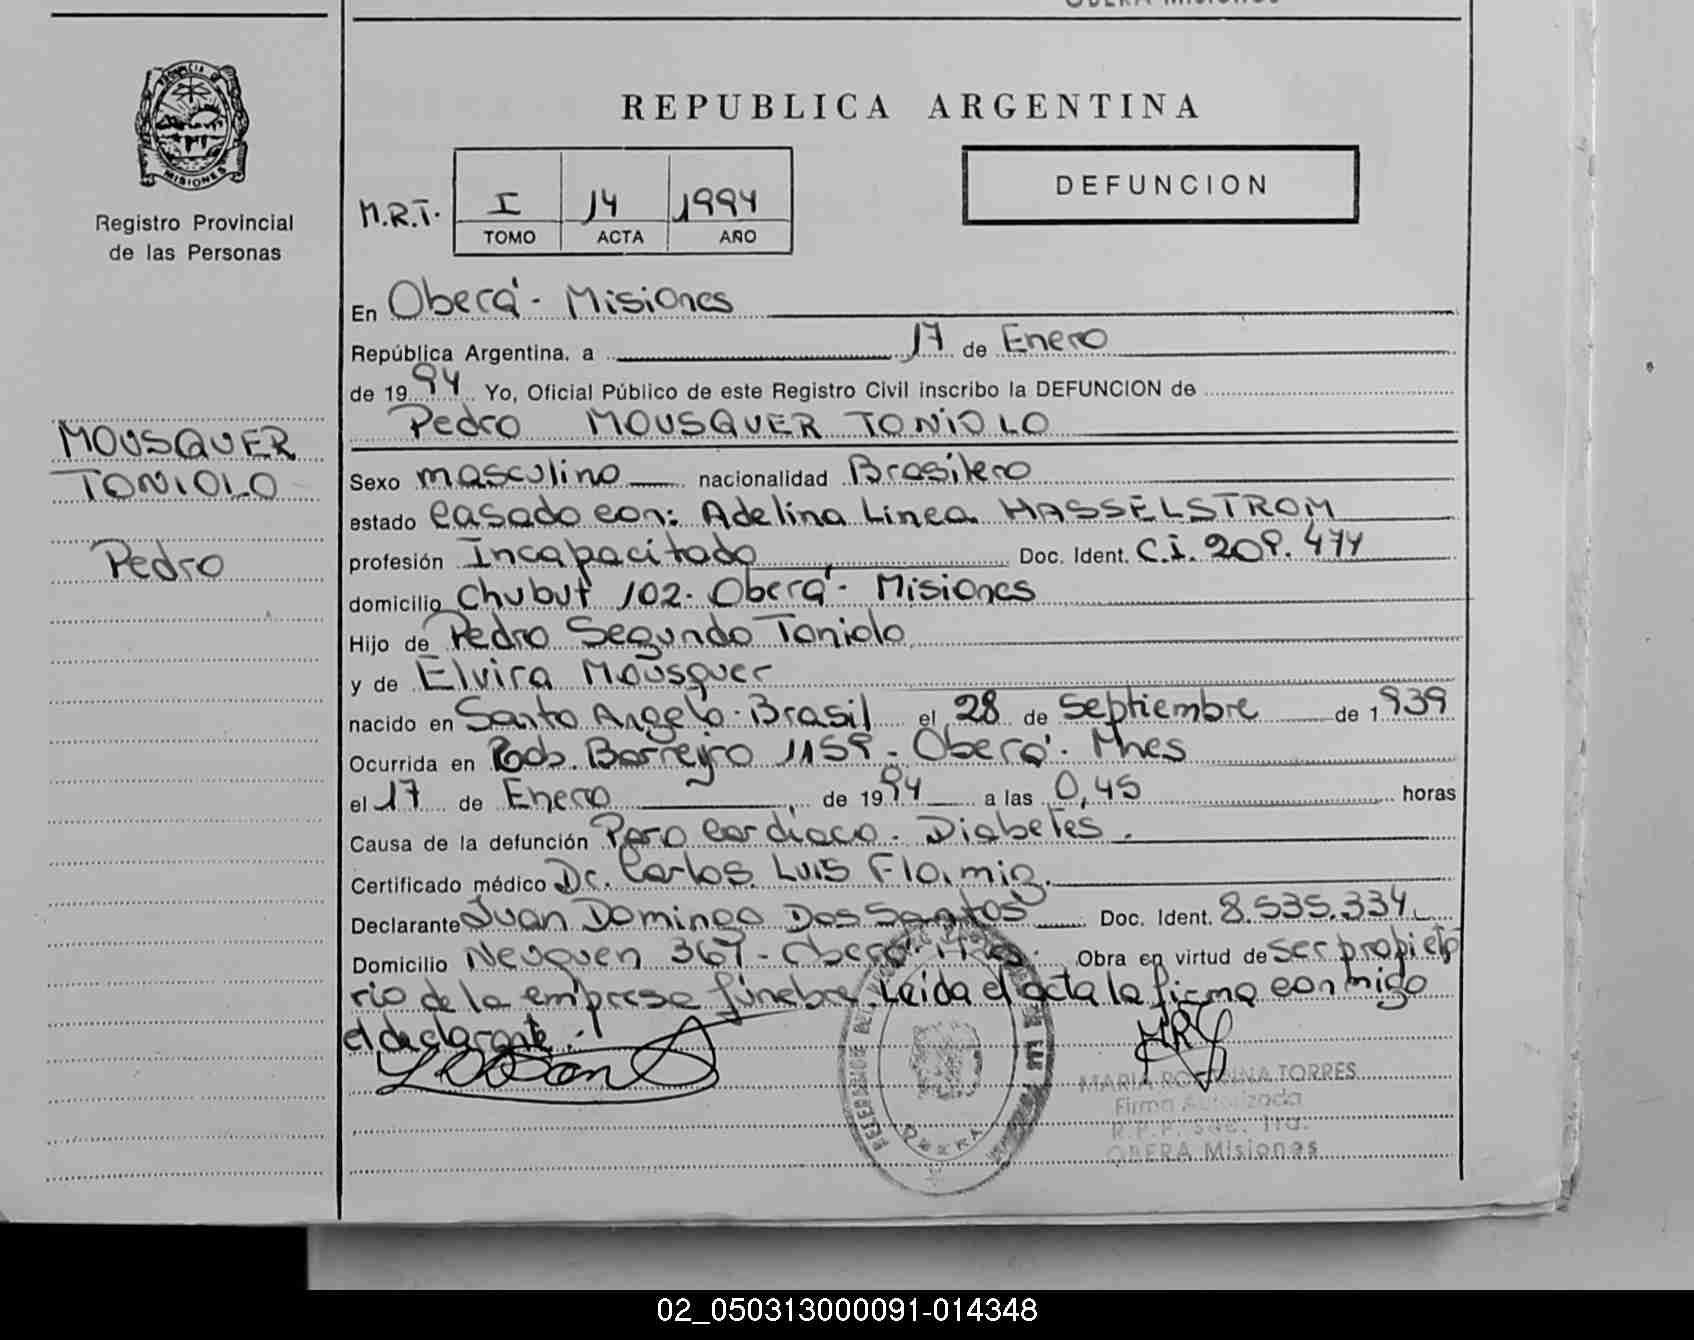 PROVINCIA DE
MISIONES
Registro Provincial
de las Personas
MOUSQUER
TONIOLO
Pedro
OBERA Misiones
REPUBLICA ARGENTINA
M.R.T.
I 14 1994
TOMO ACTA AÑO
DEFUNCION
En Oberá - Misiones
República Argentina, a 17 de Enero
de 1994 Yo, Oficial Público de este Registro Civil inscribo la DEFUNCION de
Pedro MOUSQUER TONIOLO
Sexo masculino nacionalidad Brasilero
estado casado con: Adelina Linea HASSELSTROM
profesión Incapacitado Doc. Ident. C.I. 209.474
domicilio Chubut 102. Oberá - Misiones
Hijo de Pedro Segundo Toniolo
y de Elvira Mousquer
nacido en Santo Angelo - Brasil el 28 de Septiembre de 1939
Ocurrida en Rod. Barreyro 1159 - Oberá. Mnes
el 17 de Enero de 1994 a las 0,45 horas
Causa de la defunción Paro cardiaco. Diabetes.
Certificado médico Dr. Carlos Luis
Declarante Juan Domingo Dos Santos Doc. Ident. 8.535.334
Domicilio Neuquen 367 - Oberá. Mnes. Obra en virtud de ser propieta
rio de la empresa fúnebre. Leída el acta la firma conmigo
el declarante.
MARIA TORRES
Firma Autorizada
OBERA Misiones
02_050313000091-014348